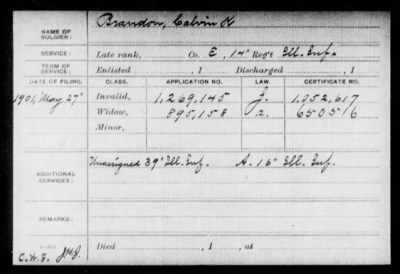 NAME OF SOLDIER: Brandon, Calvin K
SERVICE: Late rank, Co. E, 14" Reg't Ill. Inf.
TERM OF SERVICE: Enlisted , 1 Discharged , 1
DATE OF FILING. CLASS. APPLICATION NO. LAW. CERTIFICATE NO.
1901, May 27" Invalid, 1,269,145 J. 1,052,617
Widow, 895,158 a. 650516
Minor,
ADDITIONAL SERVICES: Unassigned 39" Ill. Inf. A. 16" Ill. Inf.
REMARKS:
Died , 1 , at
C.W.F.